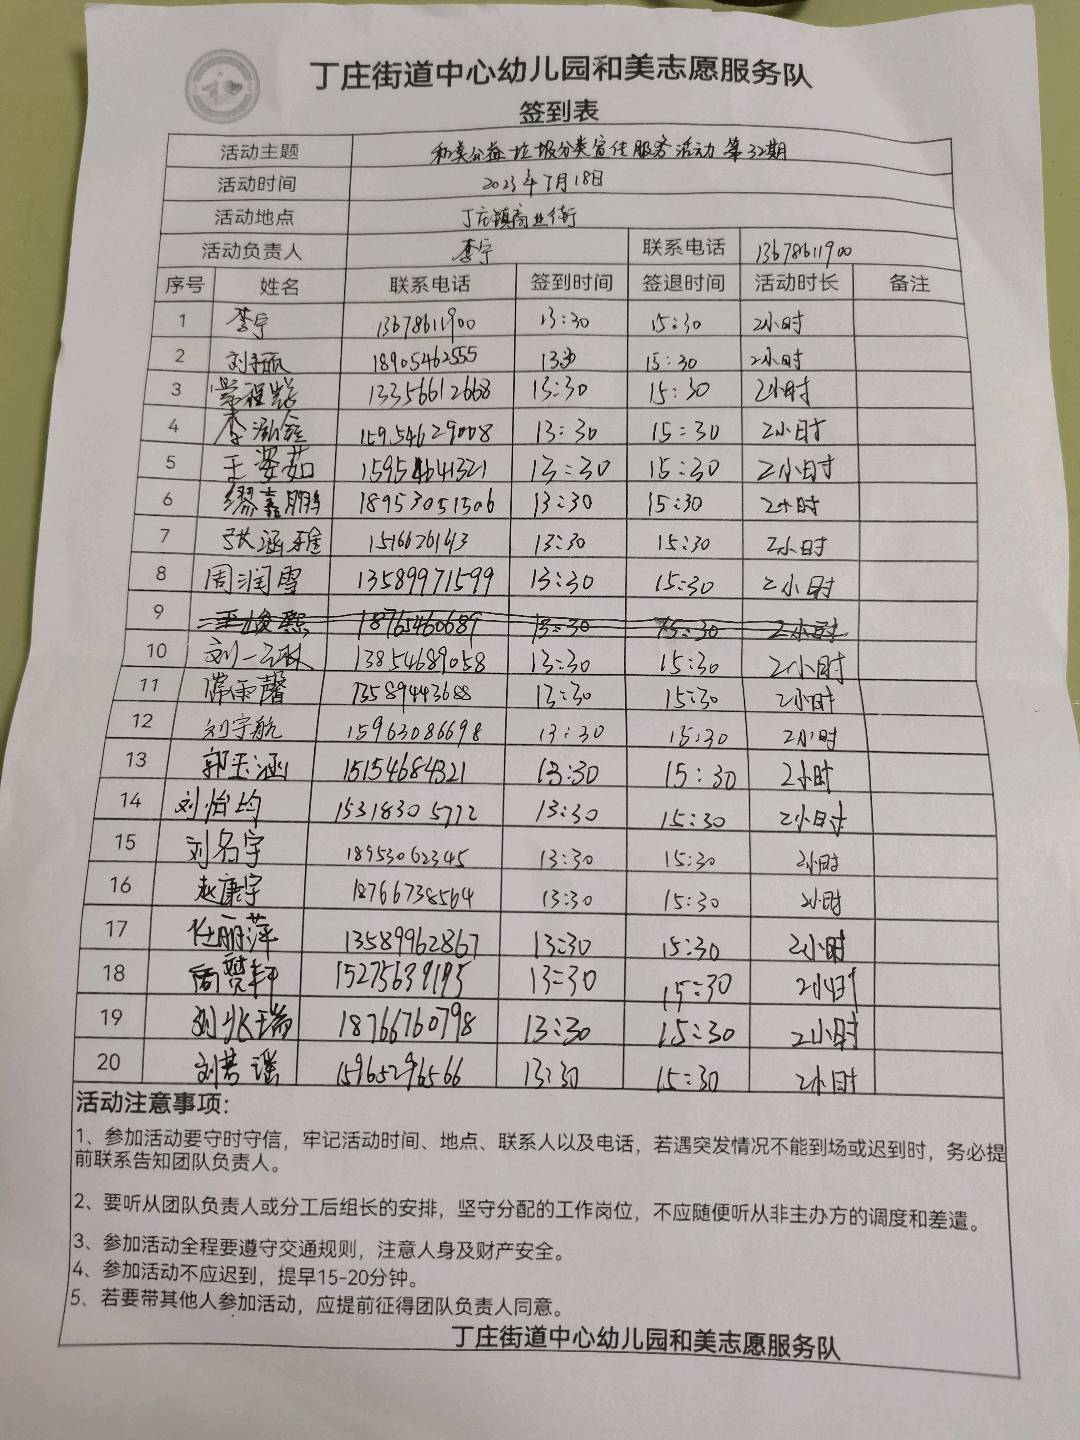 丁庄街道中心幼儿园和美志愿服务队
签到表
活动主题 和美公益垃圾分类宣传服务活动 第32期
活动时间 2023年7月18日
活动地点 丁庄镇商业街
活动负责人 李宁 联系电话 13678611900
序号 姓名 联系电话 签到时间 签退时间 活动时长 备注
1 李宁 13678611900 13:30 15:30 2小时
2 18905462555 13:30 15:30 2小时
3 13356612668 13:30 15:30 2小时
4 李泓鑫 15954629008 13:30 15:30 2小时
5 王姿茹 15954641321 13:30 15:30 2小时
6 缪鑫鹏 18953051506 13:30 15:30 2小时
7 张涵雅 13:30 15:30 2小时
8 周润雪 13589971599 13:30 15:30 2小时
9 18765460689 13:30 15:30 2小时
10 刘一 13854689058 13:30 15:30 2小时
11 雨馨 13589443688 13:30 15:30 2小时
12 刘宇航 15963086698 13:30 15:30 2小时
13 郭玉涵 15154684321 13:30 15:30 2小时
14 刘怡均 15318305772 13:30 15:30 2小时
15 刘名宇 18953062345 13:30 15:30 2小时
16 赵康宇 18766738564 13:30 15:30 2小时
17 任丽萍 13589962867 13:30 15:30 2小时
18 15275639195 13:30 15:30 2小时
19 刘兆瑞 18766760798 13:30 15:30 2小时
20 刘若瑶 15965296566 13:30 15:30 2小时
活动注意事项：
1、参加活动要守时守信，牢记活动时间、地点、联系人以及电话，若遇突发情况不能到场或迟到时，务必提
前联系告知团队负责人。
2、要听从团队负责人或分工后组长的安排，坚守分配的工作岗位，不应随便听从非主办方的调度和差遣。
3、参加活动全程要遵守交通规则，注意人身及财产安全。
4、参加活动不应迟到，提早15-20分钟。
5、若要带其他人参加活动，应提前征得团队负责人同意。
丁庄街道中心幼儿园和美志愿服务队